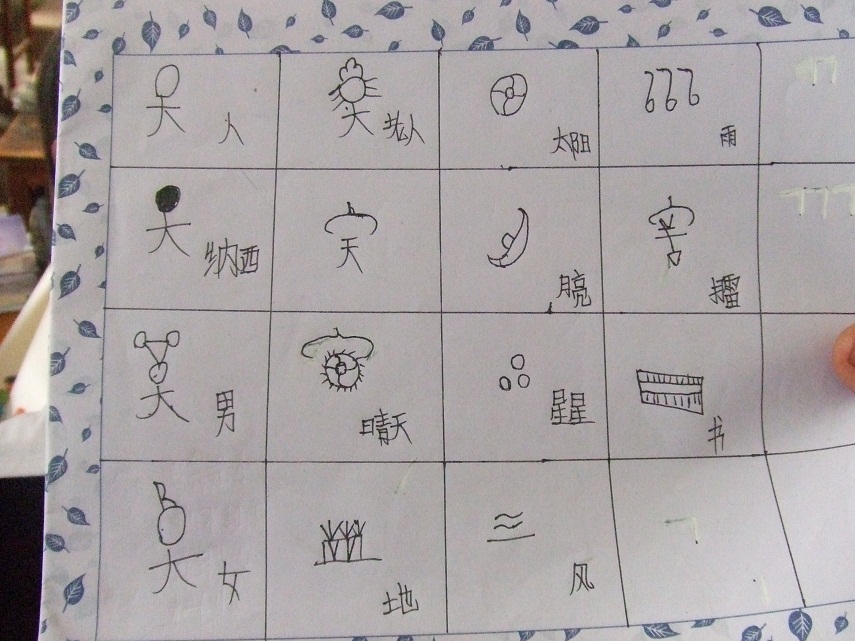 人
老人
太阳
雨
纳西
天
月亮
男
晴天
星星
书
女
地
风